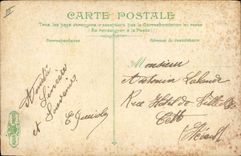 CARTE POSTALE
Tous les pays étrangers n'acceptent pas la Correspondance au recto
Se renseigner à la Poste
Correspondance
Adresse du destinataire
Amitié
Sincère
et Souvenir
Monsieur
Antonin
Rue Hôtel de Ville
Cette
Hérault